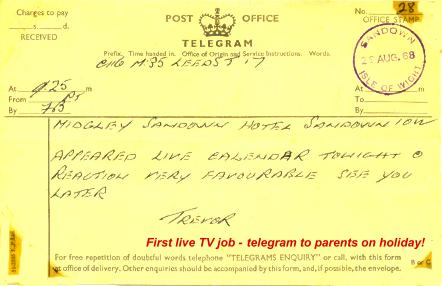 Charges to pay
s. d.
RECEIVED
POST OFFICE
TELEGRAM
No. 28
OFFICE STAMP
Prefix. Time handed in. Office of Origin and Service Instructions. Words.
M35 LEEDS T 17
SANDOWN
AUG. 68
ISLE OF WIGHT
At 9.25 m
From
By
At m
To
By
MIDGLEY SANDOWN HOTEL SANDOWN IOW
APPEARED LIVE CALENDAR TONIGHT
REACTION VERY FAVOURABLE SEE YOU
LATER
TREVOR
First live TV job - telegram to parents on holiday!
For free repetition of doubtful words telephone "TELEGRAMS ENQUIRY" or call, with this form
at office of delivery. Other enquiries should be accompanied by this form, and, if possible, the envelope.
B or C